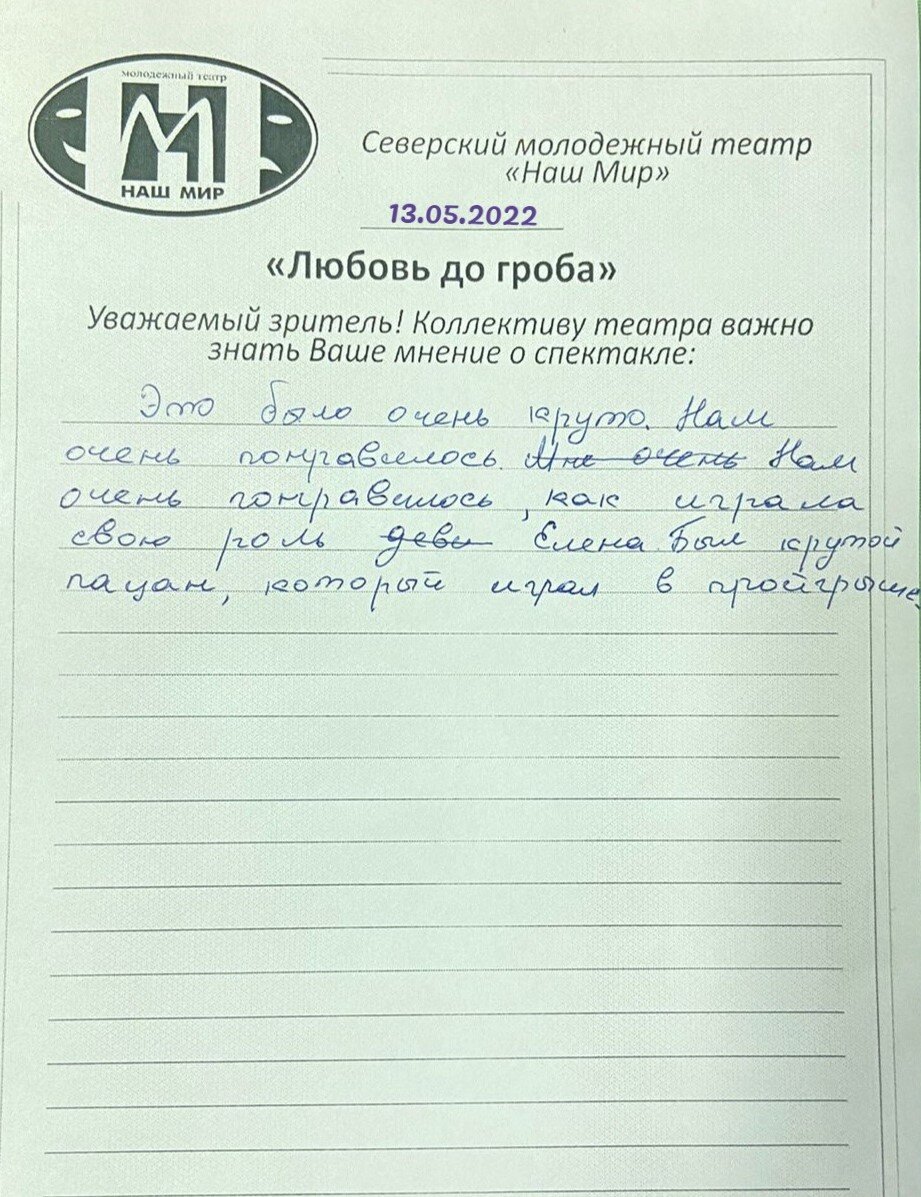 молодежный театр
НАШ МИР
Северский молодежный театр
«Наш Мир»
13.05.2022
«Любовь до гроба»
Уважаемый зритель! Коллективу театра важно
знать Ваше мнение о спектакле:
Это было очень круто. Нам
очень понравилось. Мне очень Нам
очень понравилось, как играла
свою роль деви Елена. Был крутой
пацан, который играл в пройгрыше.